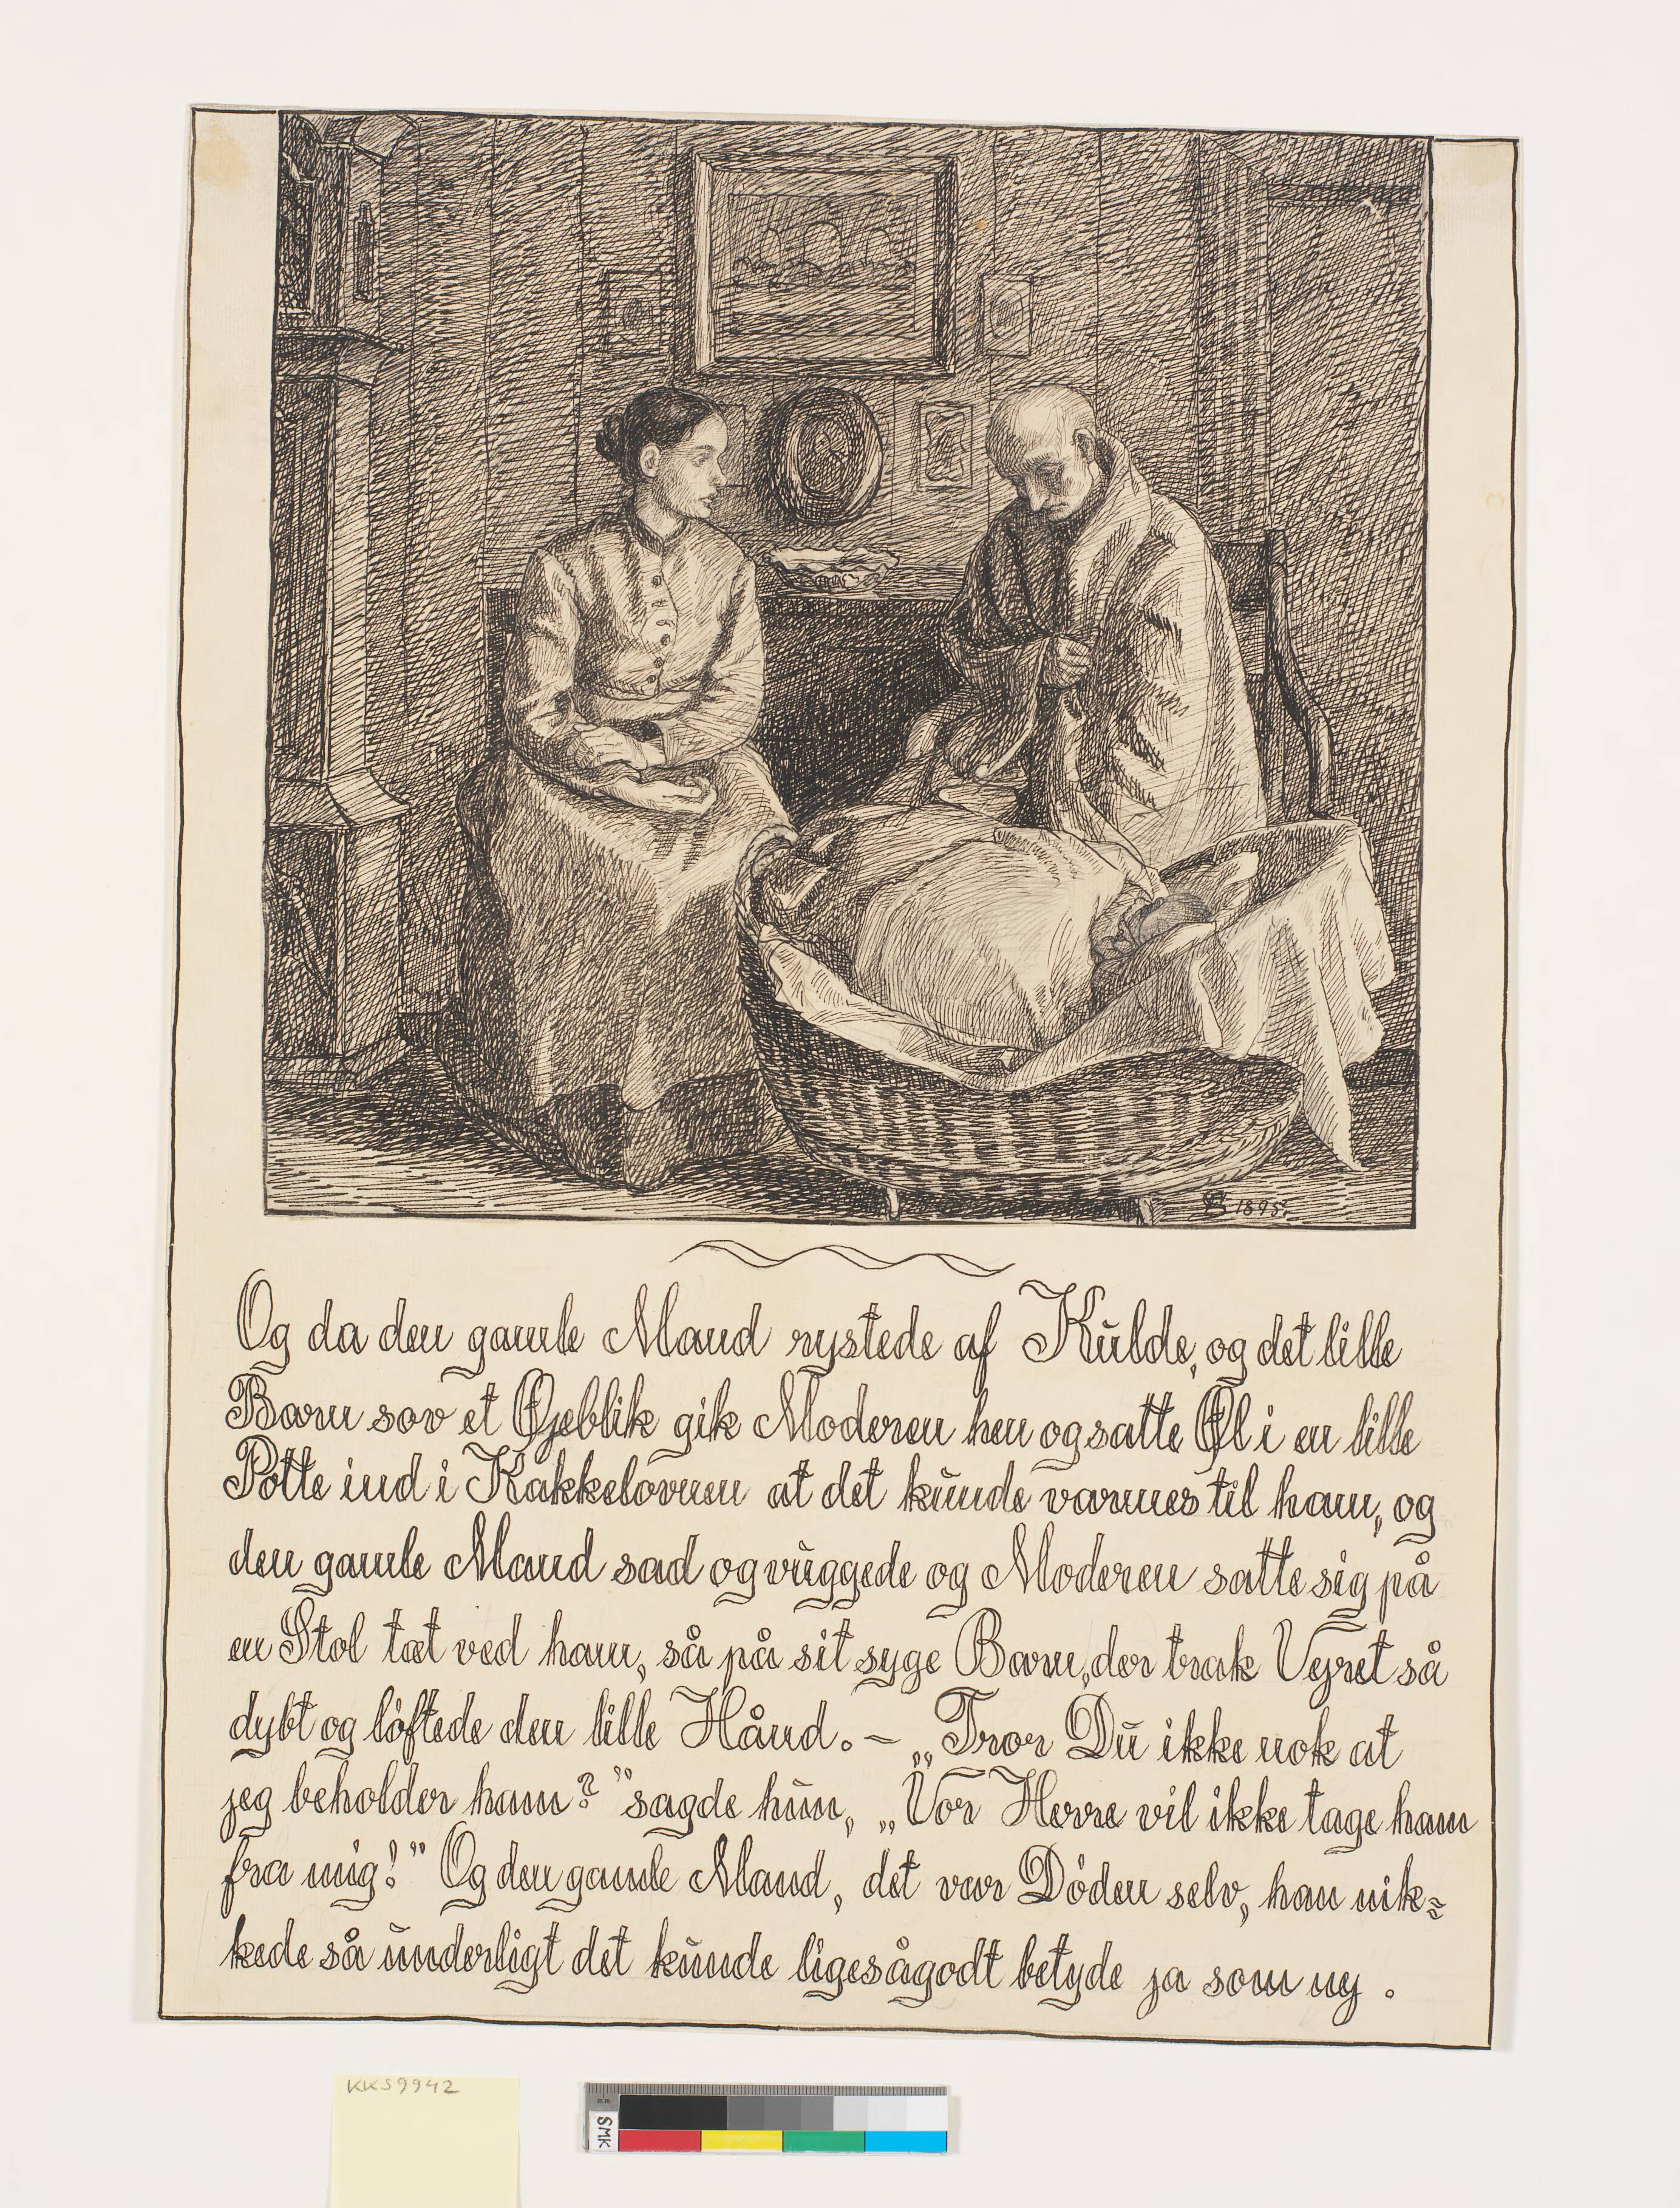 1895.
Og da den gamle Mand rystede af Kulde, og det lille
Barn sov et Øjeblik gik Moderen hen og satte Øl i en lille
Potte ind i Kakkelovnen at det kunde varmes til ham, og
den gamle Mand sad og vuggede og Moderen satte sig på
en Stol tæt ved ham, så på sit syge Barn, der trak Vejret så
dybt og løftede den lille Hånd. – „Tror Du ikke nok at
jeg beholder ham?” sagde hun, „Vor Herre vil ikke tage ham
fra mig!” Og den gamle Mand, det var Døden selv, han nik=
kede så underligt det kunde ligesågodt betyde ja som nej.
KKS9942
SMK